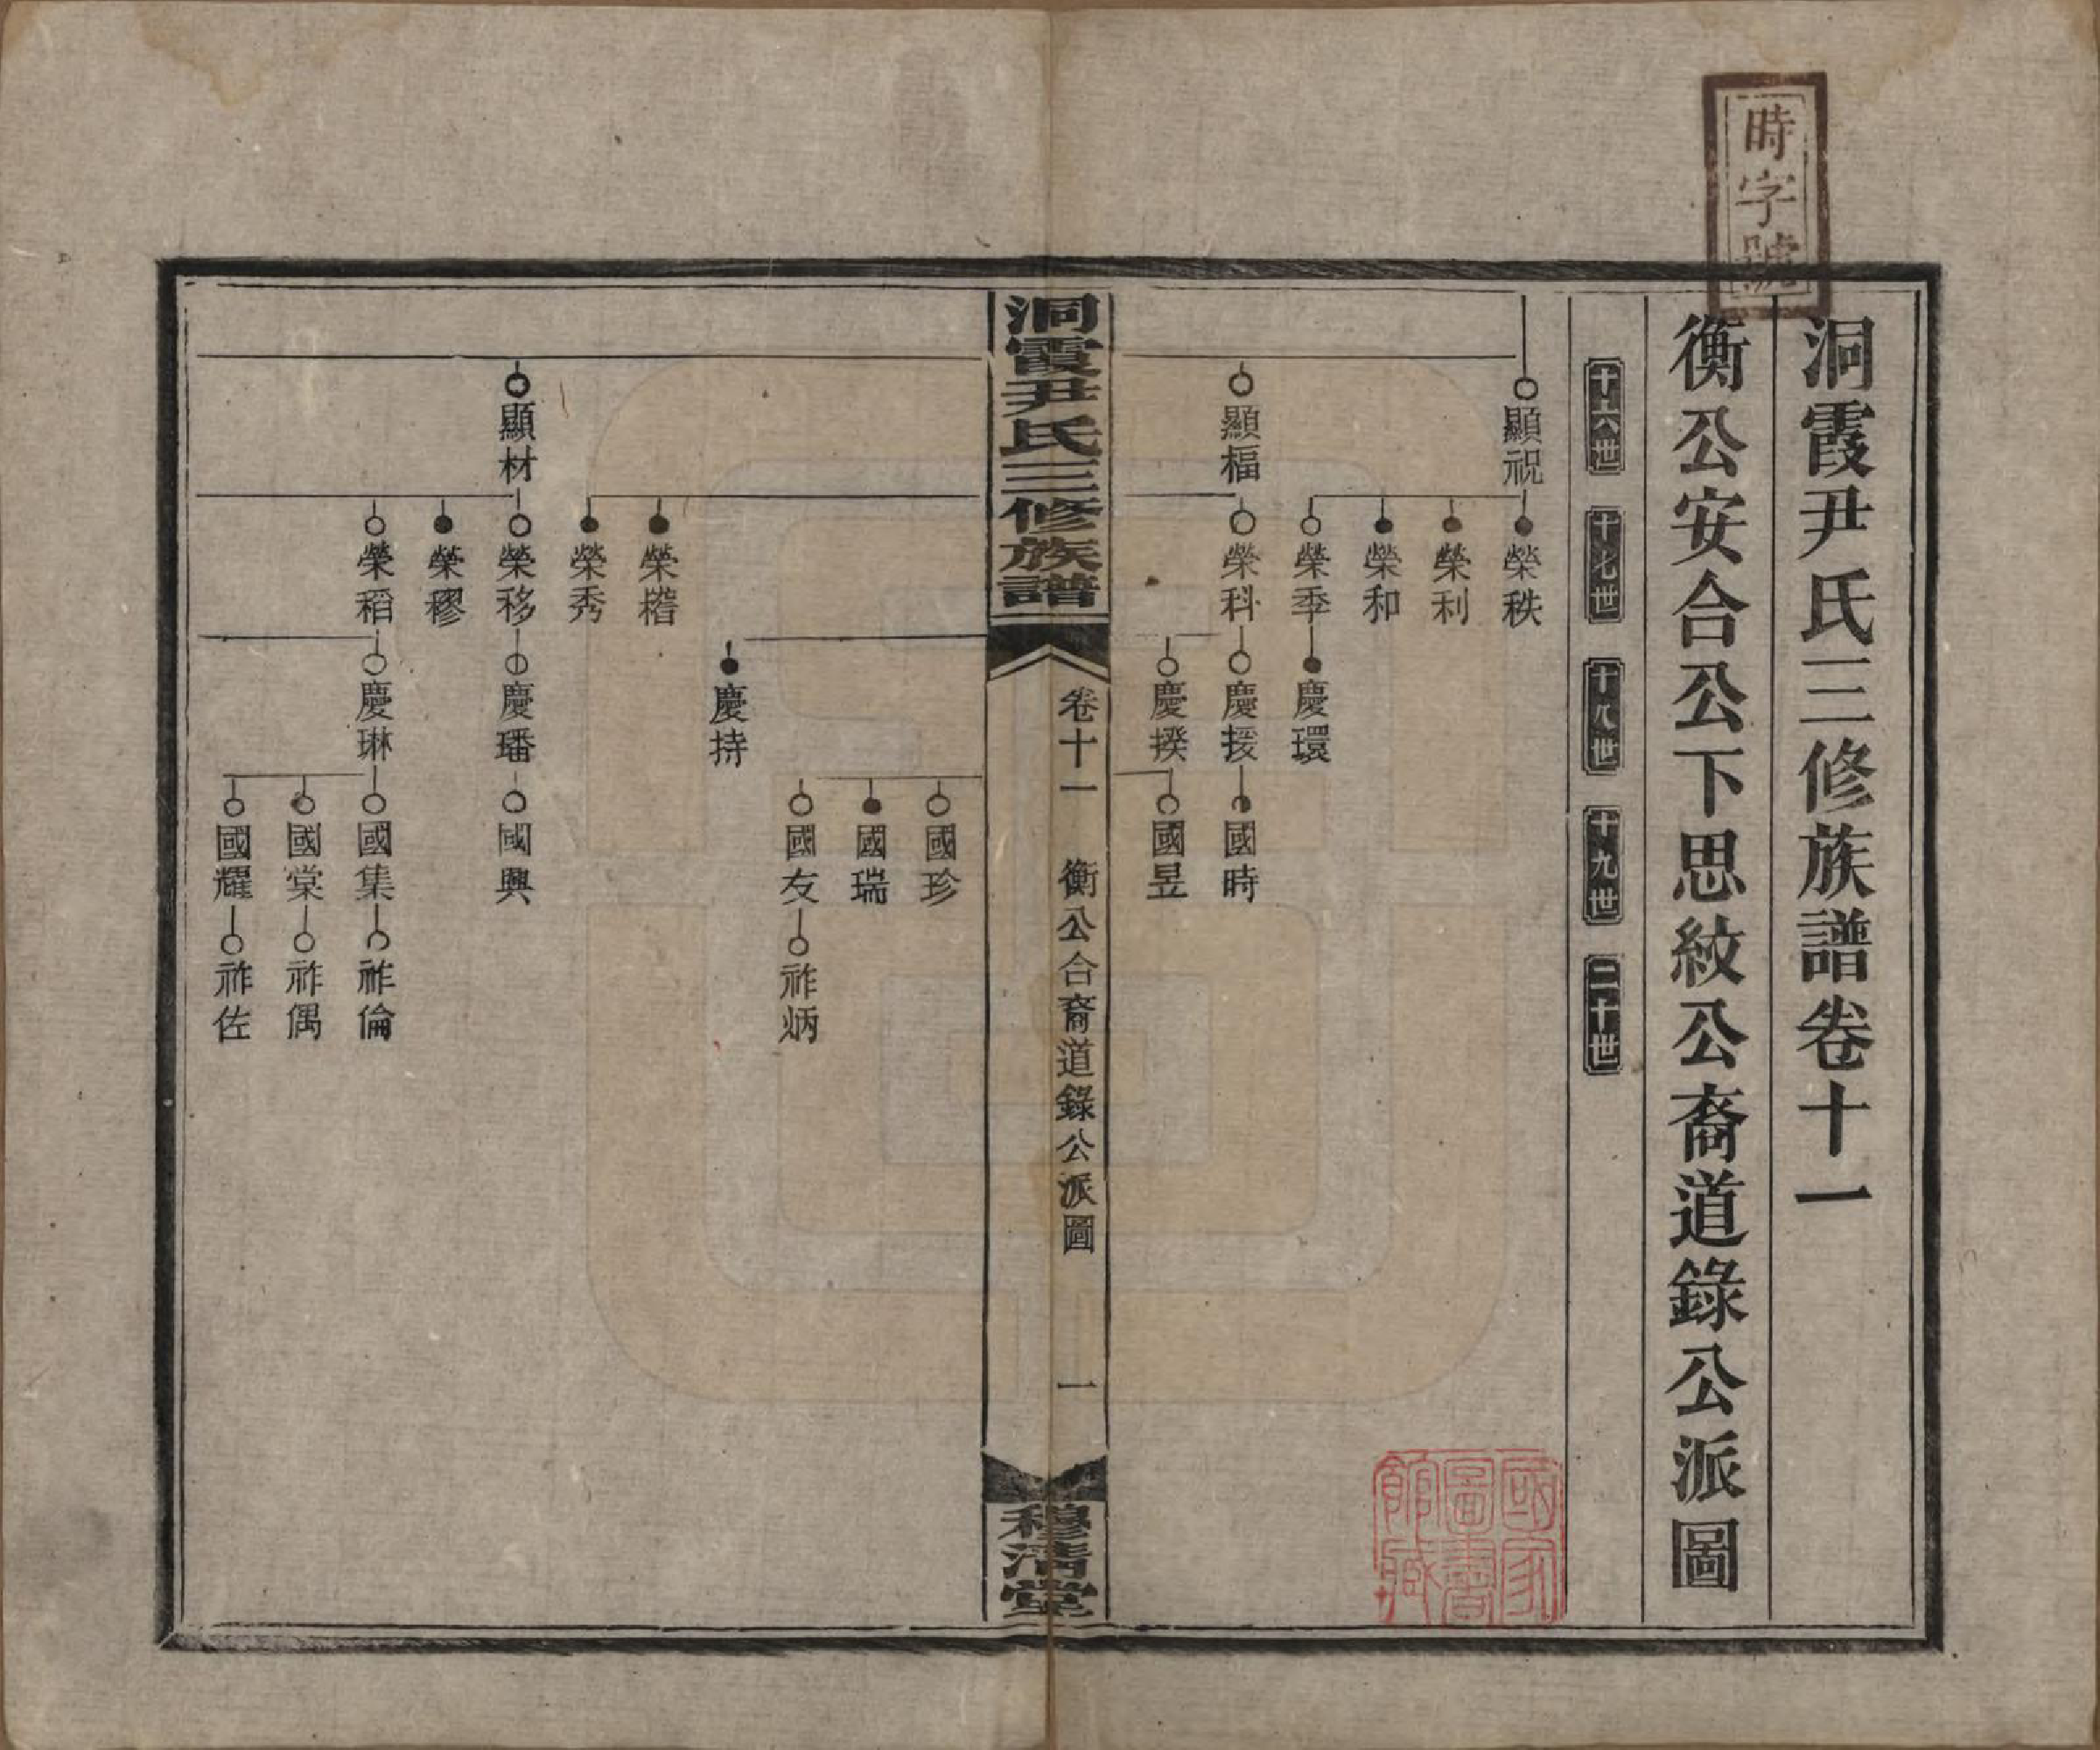 時字號
洞霞尹氏三修族譜卷十一
衡公安合公下思紋公裔道錄公派圖
十六世 十七世 十八世 十九世 二十世
顯祝 榮秩
榮利
榮和
榮季 慶環
顯楅 榮科 慶援 國時
慶揆 國昱
洞霞尹氏三修族譜
卷十一 衡公合裔道錄公派圖 一
穆清堂
國珍
國瑞
國友 祚炳
慶持
榮榰
榮秀
顯材 榮移 慶璠 國興
榮穆
榮稻 慶琳 國集 祚倫
國棠 祚偶
國耀 祚佐
國家圖書館藏